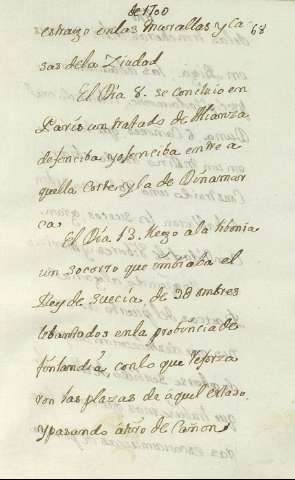 de 1700
68
estrago en las Murallas y Ca-
sas de la Ziudad
El Dia 8. se concluio en
Paris un tratado de Alianza
defenciba yofenciba entre a
quella Corte, y la de Dinamar
ca.
El Dia 13. llego a la libonia
un socorro que imbiaba el
Rey de suecia, de 28 ombres
lebantados en la probincia de
finlandia, con lo que reforza
ron las plazas de aquel estado,
y pasando a tiro de Cañon